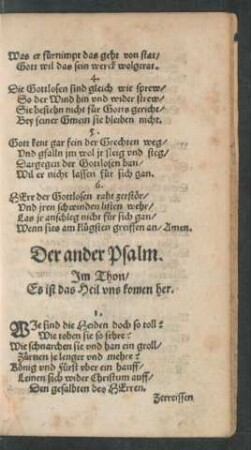 Was er fürnimpt das geht von stat/
Gott wil das sein werck wolgerat.
4.
Die Gottlosen sind gleich wie sprew/
So der Wind hin vnd wider strew/
Sie bestehn nicht für Gotts gericht/
Bey seiner Gmein sie bleiben nicht.
5.
Gott kent gar fein der Grechten weg/
Vnd gfalln im wol je steig vnd steg/
Dargegen der Gottlosen ban/
Wil er nicht lassen für sich gan.
6.
HErr der Gottlosen raht zerstör/
Vnd jren schwinden listen wehr/
Las je anschleg nicht für sich gan/
Wenn sies am klügsten greiffen an/ Amen.
Der ander Psalm.
Im Thon/
Es ist das Heil vns komen her.
1.
WIe sind die Heiden doch so toll?
Wie toben sie so sehre?
Wie schnarchen sie vnd han ein groll/
Zürnen je lenger vnd mehre?
König vnd Fürst vber ein hauff/
Leinen sich wider Christum auff/
Den gesalbten des HErren.
Zerreissen